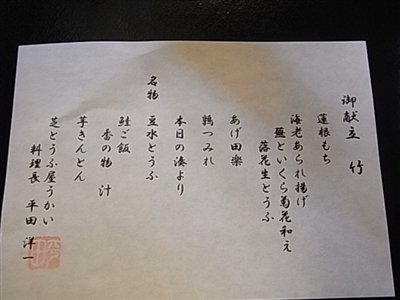 御献立 竹
蓮根もち
海老あられ揚げ
蕪といくら菊花和え
落花生とうふ
あげ田楽
鶉つみれ
本日の湊より
名物 豆水とうふ
鮭ご飯
香の物 汁
芋きんとん
芝とうふ屋うかい
料理長 平田 洋一